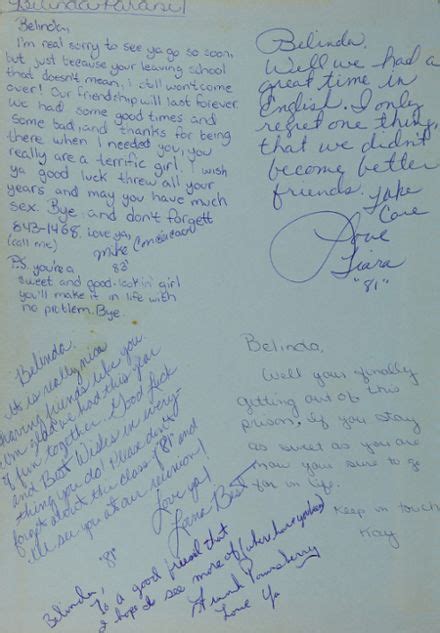 Belinda
Belinda,
I'm real sorry to see ya go so soon,
but just because your leaving school
that doesnt mean, i still wont come
over! Our friendship will last forever
we had some good times and
some bad, and thanks for being
there when I needed you, you
really are a terrific girl. I wish
ya good luck threw all your
years and may you have much
sex. Bye. and don't forgett
843-1468. Love ya,
(call me) Mike
P.S. you're a 83'
sweet and good-lookin' girl
you'll make it in life with
no problem. Bye.
Belinda,
Well we had a
great time in
English. I only
regret one thing,
that we didn't
become better
friends. Take
Care
Love
Tiara
"81"
Belinda,
It is really nice
having friends like you.
I'm glad we had this year
of fun together. Good Luck
and Best Wishes in every-
thing you do! Please don't
forget about the class of "81" and
I'll see you at our reunion!
Love ya!
Lorna Best
"81"
Belinda,
Well your finally
getting out of this
prison. If you stay
as sweet as you are
now your sure to go
far in life.
Keep in touch
Kay
Belinda,
To a good friend that
I hope to see more of (where have you been)
Frank
Love Ya